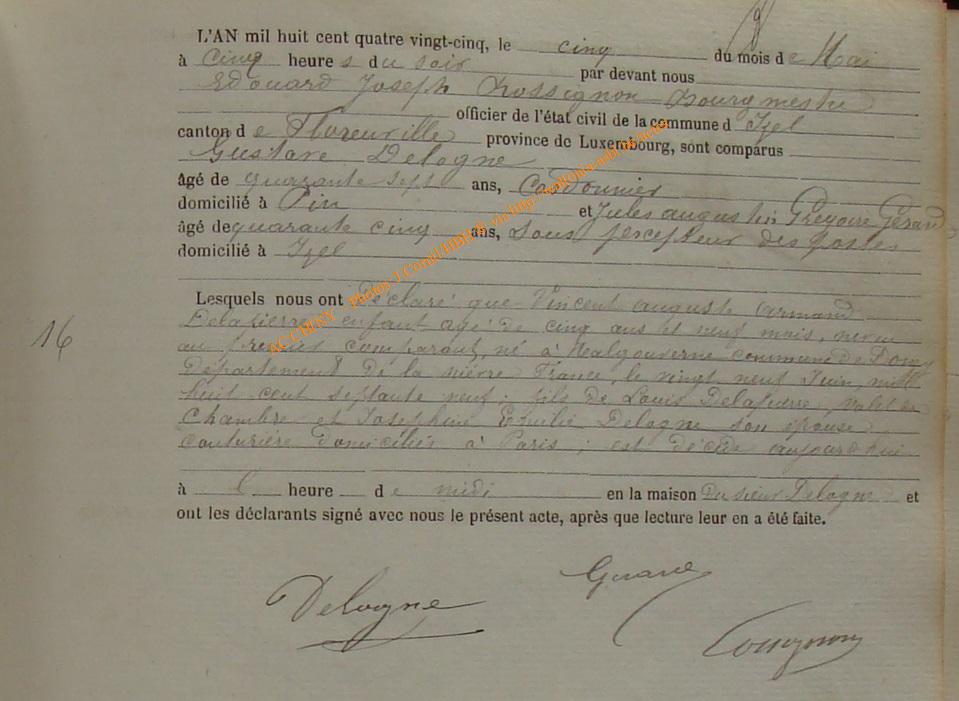 L'AN mil huit cent quatre vingt-cinq, le cinq du mois de Mai
à cinq heures du soir par devant nous
Edouard Joseph Rossignon Bourgmestre
officier de l'état civil de la commune d Izel
canton de Florenville province de Luxembourg, sont comparus
Gustave Delogne
âgé de quarante sept ans, Cordonnier
domicilié à Pin et Jules augustin Grégoire Gérard
âgé de quarante cinq ans, Sous percepteur des postes
domicilié à Izel
Lesquels nous ont Déclaré que Vincent auguste armand
Delapierre, enfant agé de cinq ans et neuf mois, neveu
au premier comparant, né à commune de
Département de la nièvre France, le vingt neuf Juin, mille
huit cent septante neuf ; fils de Louis Delapierre, valet de
Chambre et Joséphine Emilie Delogne son épouse
couturière domiciliés à Paris ; est décédé aujourd'hui
à l heure de midi en la maison du sieur Delogne et
ont les déclarants signé avec nous le présent acte, après que lecture leur en a été faite.
16
Delogne
Gerard
Rossignon